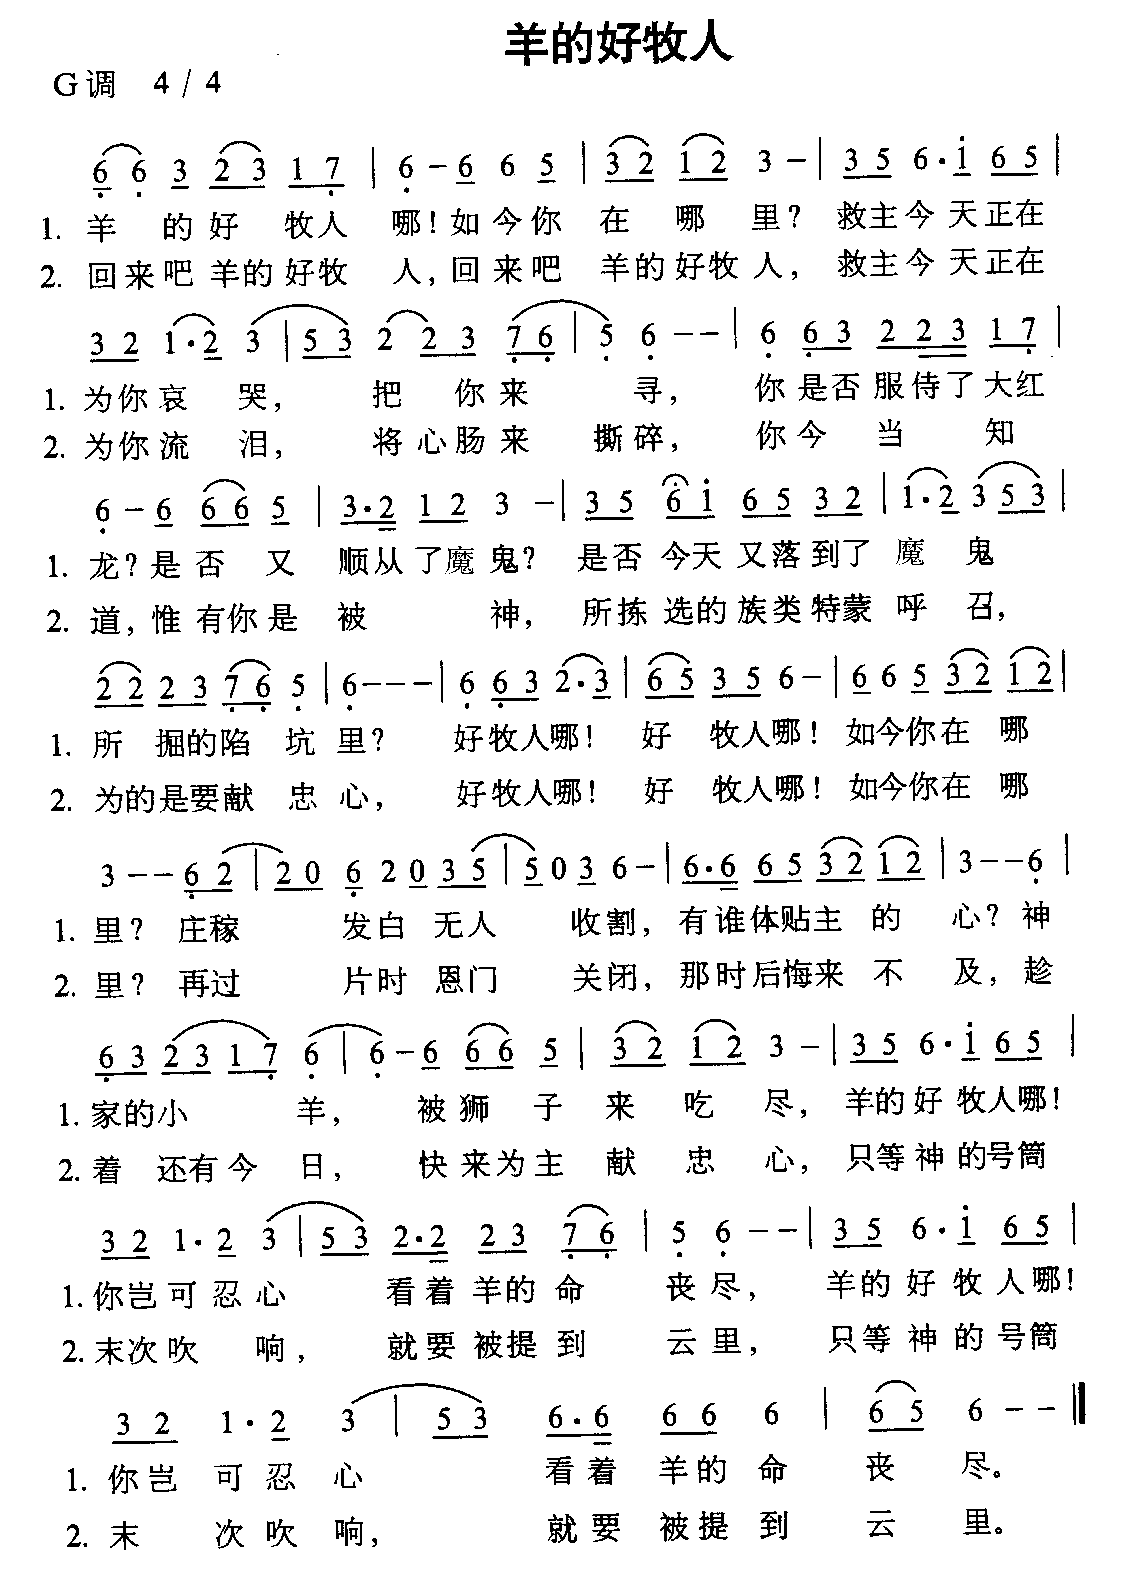 羊的好牧人
G调 4 / 4
6 6 3 2 3 1 7 | 6 - 6 6 5 | 3 2 1 2 3 - | 3 5 6 · 1 6 5 |
1. 羊 的 好 牧人 哪! 如今你 在 哪 里? 救主今天正在
2. 回来吧 羊的好牧 人, 回来吧 羊的好牧人, 救主今天正在
3 2 1 · 2 3 | 5 3 2 2 3 7 6 | 5 6 - - | 6 6 3 2 2 3 1 7 |
1. 为你哀 哭, 把 你来 寻, 你是否服侍了大红
2. 为你流 泪, 将心肠来 撕碎, 你今 当 知
6 - 6 6 6 5 | 3 · 2 1 2 3 - | 3 5 6 i 6 5 3 2 | 1 · 2 3 5 3 |
1. 龙? 是否 又 顺从了魔鬼? 是否 今天又落到了 魔 鬼
2. 道, 惟有你是 被 神, 所拣选的族类特蒙呼 召,
2 2 2 3 7 6 5 | 6 - - - | 6 6 3 2 · 3 | 6 5 3 5 6 - | 6 6 5 3 2 1 2 |
1. 所 掘的陷 坑里? 好牧人哪! 好 牧人哪! 如今你在 哪
2. 为的是要献 忠心, 好牧人哪! 好 牧人哪! 如今你在 哪
3 - - 6 2 | 2 0 6 2 0 3 5 | 5 0 3 6 - | 6 · 6 6 5 3 2 1 2 | 3 - - 6 |
1. 里? 庄稼 发白 无人 收割, 有谁体贴主 的 心? 神
2. 里? 再过 片时 恩门 关闭, 那时后悔来 不 及, 趁
6 3 2 3 1 7 6 | 6 - 6 6 6 5 | 3 2 1 2 3 - | 3 5 6 · i 6 5 |
1. 家的小 羊, 被狮 子 来 吃 尽, 羊的好牧人哪!
2. 着 还有今 日, 快来为主 献 忠 心, 只等神的号筒
3 2 1 · 2 3 | 5 3 2 · 2 2 3 7 6 | 5 6 - - | 3 5 6 · i 6 5 |
1. 你岂可忍心 看着羊的命 丧尽, 羊的好牧人哪!
2. 末次吹 响, 就要被提到 云里, 只等神的号筒
3 2 1 · 2 3 | 5 3 6 · 6 6 6 6 | 6 5 6 - - ‖
1. 你岂 可忍心 看着 羊的命 丧 尽。
2. 末 次吹响, 就要 被提到 云 里。